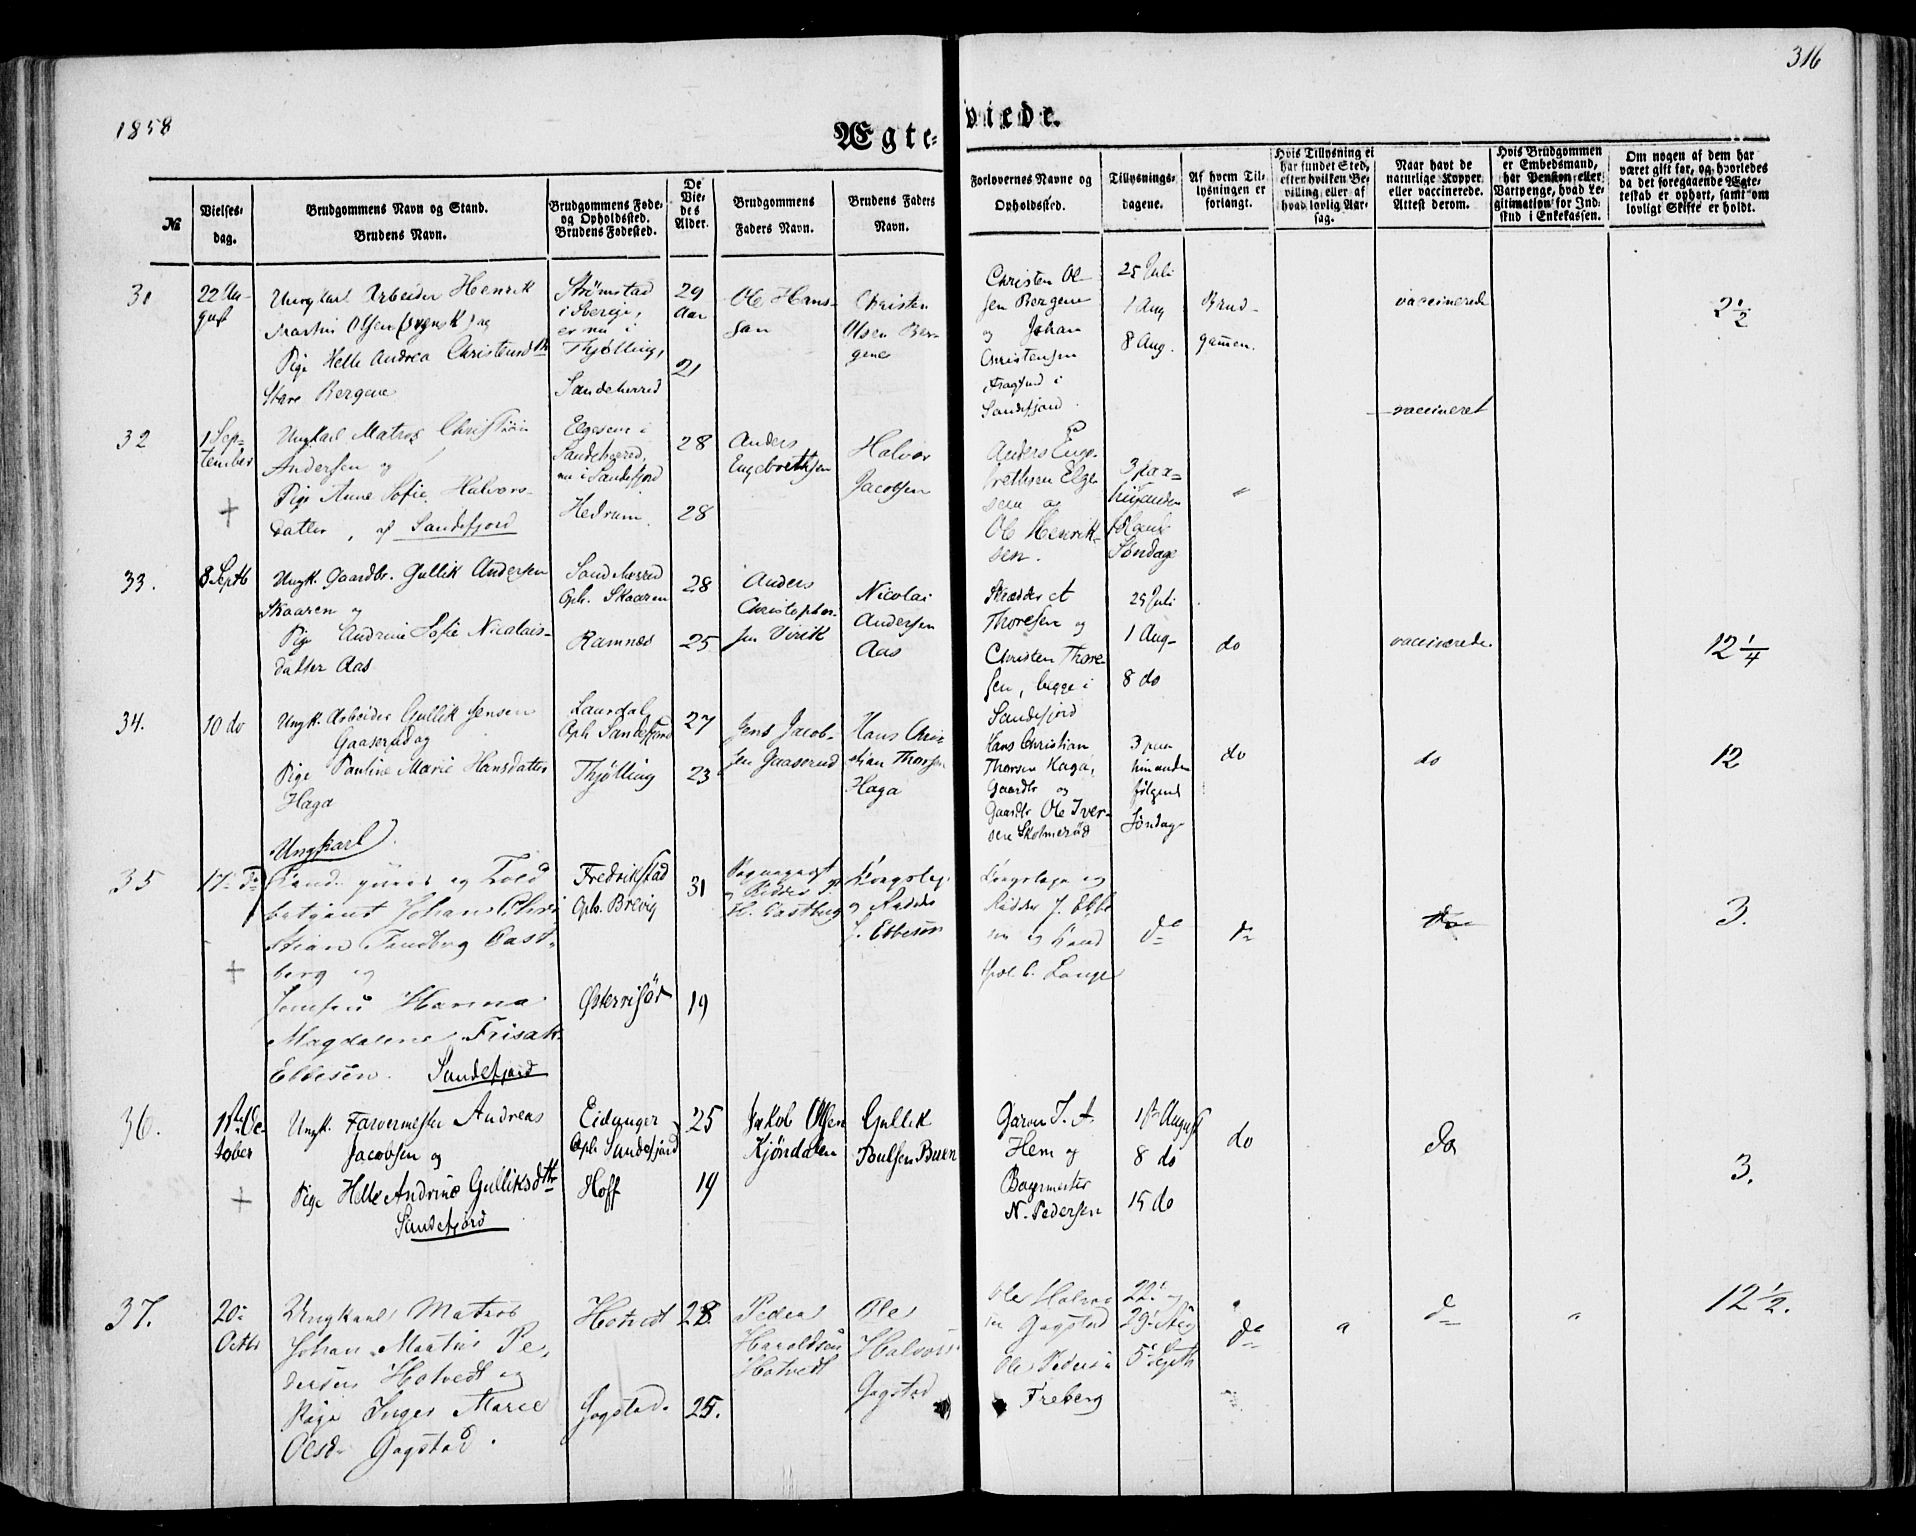 316
1858
Ægte-viede.
№
Vielses-dag.
Brudgommens Navn og Stand.
Brudens Navn.
Brudgommens Føde- og Opholdssted.
Brudens Fødested.
De Vie-des Alder.
Brudgommens Faders Navn.
Brudens Faders Navn.
Forlovernes Navne og Opholdssted.
Tillysnings-dagene.
Af hvem Til-lysningen er forlangt.
Hvis Tillysning ei har fundet Sted, efter hvilken Be-villing eller af hvad lovlig Aar-sag.
Naar havt de naturlige Kopper eller vaccinerede. Attest derom.
Hvis Brudgommen er Embedsmand, har Pension eller Vartpenge, hvad Le-gitimation for Ind-skud i Enkekassen.
Om nogen af dem har været gift før, og hvorledes da det foregaaende Ægte-teskab er ophørt, samt om lovligt Skifte er holdt.
31
22 Au-
gust
Ungkarl Arbeider Henrik
Martin Olsen (svensk) og
Pige Helle Andrea Christensdtr
Store Bergene
Strømstad
i Sverige,
er nu i
Thjølling,
Sandeherred
29
Aar
21
Ole Hans-
san
Christen
Olsen Ber-
gene
Christen Ol-
sen Bergene
og Johan
Christensen
i
Sandefjord.
25 Juli
1 Aug
8 Aug.
Brud-
gommen.
vaccinerede
2 1/2
32
1 Sep-
tember
+
Ungkarl Matros Christian
Andersen og
Pige Anne Sofie Halvors-
datter, af Sandefjord
Elgesem i
Sandeherred,
nu i Sandefjord
Hedrum.
28
28
Anders
Engebrethsen
Halvor
Jacobsen
Anders Enge-
brethsen Elge-
sem og
Ole Henrik-
sen.
3 paa
hinanden
følgende
Søndage
"
vaccineret
33.
8 Septb
Ungk. Gaardbr. Gullik Andersen
Skaaren og
Pige Andrine Sofie Nicolais-
datter Aas
Sandeherred
Oph. Skaaren
Ramnæs
28
25
Anders
Christopher-
sen Virik
Nicolai
Andersen
Aas
Skrædder A
Thoresen og
Christen Thore-
sen, begge i
Sandefjord
25 Juli
1 Aug-
8 do
do
vaccinerede
12 1/4
34.
10 do
Ungk. Arbeider Gullik Jensen
Gaaserud og
Pige Pauline Marie Hansdatter
Haga
Laurdal
Oph. Sandefjord
Thjølling
27
23
Jens Jacob-
sen Gaaserud
Hans Chris-
tian Thorsen
Haga
Hans Christian
Thorsen Haga,
Gaardbr og
Gaardbr Ole Iver-
sen Skolmerød
3 paa
hinanden
følgende
Søndag
do
do
12
35
17 do
+
Ungkarl
Cand. juris og Told
betjent Johan Chri
stian Tandberg Cast-
berg og
Jomfru Hanna
Magdalene Frisak
Ebbesen. Sandefjord
Fredrikstad
Oph. Brevig
Østerrisør
31
19
og Ridder
H. Castberg
og Ridder
J. Ebbesen
og
Ridder J. Ebbe
sen og Cand
theol C. Lange
do
do
do
3.
36.
1ste Oc-
tober
+
Ungk. Farvermester Andreas
Jacobsen og
Pige Helle Andrine Gulliksdtr
Sandefjord
Eidanger
Oph. Sandefjord
Hoff
25
19
Jakob Olsen
Kjøndalen
Gullik
Poulsen Buen
Garver J. A.
Hem og
Bagermester
N. Pedersen
1ste August
8 do
15 do
do
do
3.
37.
20
Octb
Ungkarl Matros
Johan Martin Pe-
dersen Hotvedt og
Pige Inger Marie
Olsd. Gogstad.
Hotvedt
Gogstad.
28
25.
Peder
Haroldsen
Hotvedt
Ole
Halvors.
Gogstad
Ole Halvor
sen Gogstad
Ole Pedersen
Freberg
22 og
29 Aug
5 Septb
do
"
do
"
12 1/2.